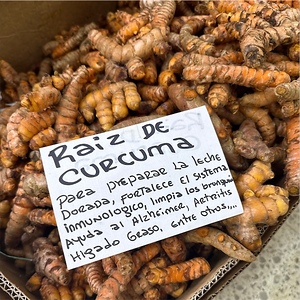 Raiz DE
CURCUMA
PARA PREPARAR LA leche
DORADA, FORTALECE El SISTEMA
INMUNOLOGICO, limpia los bronquios
Ayuda al Alzheimer, Artritis
Higado Graso, Entre otros,...